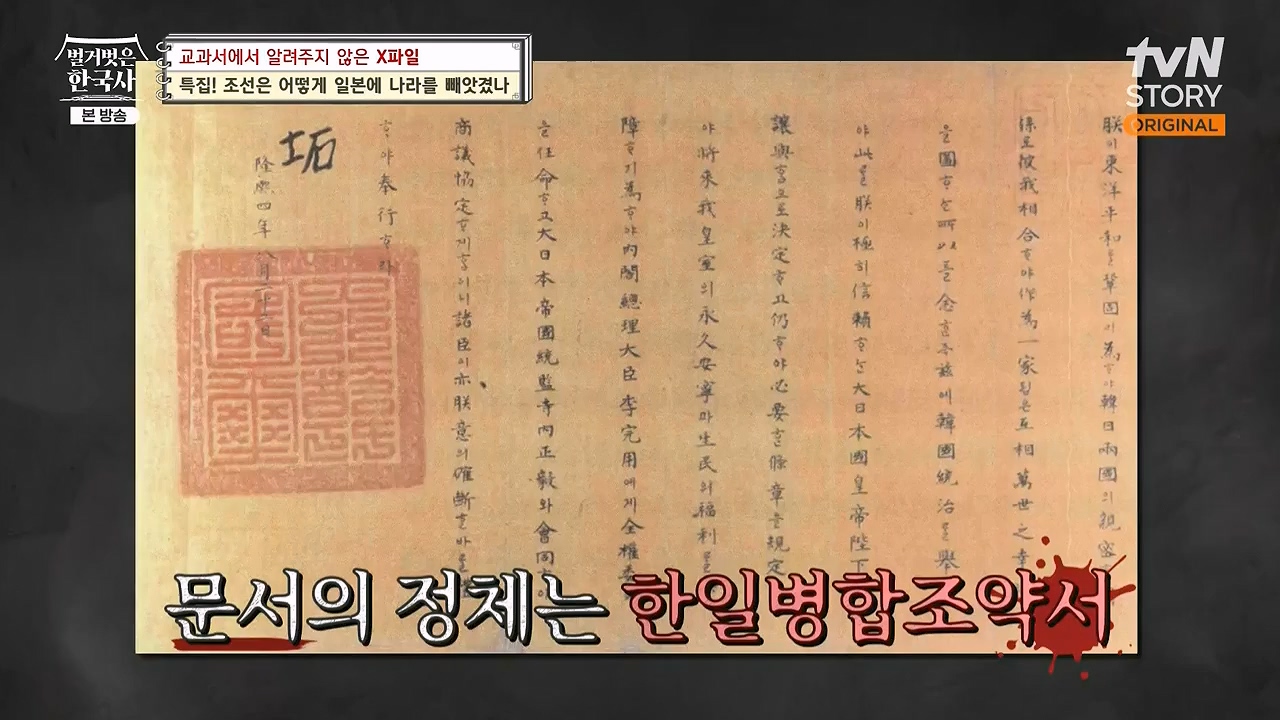 벌거벗은
한국사
본 방송
교과서에서 알려주지 않은 X파일
특집! 조선은 어떻게 일본에 나라를 빼앗겼나
tvN
STORY
ORIGINAL
朕이東洋平和를鞏固이為ᄒᆞ야韓日兩國의親密
係로彼我相合ᄒᆞ야作為一家됨은互相萬世之幸
을圖ᄒᆞᄂᆞᆫ所以를念ᄒᆞᆫ즉玆에韓國統治를擧
야此를朕이極히信賴ᄒᆞᄂᆞᆫ大日本國皇帝陛下
讓與ᄒᆞᆷ으로決定ᄒᆞ고仍ᄒᆞ야必要ᄒᆞᆫ條章을規定
야將來我皇室의永久安寧과生民의福利를
障ᄒᆞ기為ᄒᆞ야內閣總理大臣李完用에게全權委
을任命ᄒᆞ고大日本帝國統監寺內正毅와會同ᄒᆞ야
商議協定ᄒᆞ게ᄒᆞᆷ이니諸臣이亦朕意의確斷ᄒᆞᆫ바를
ᄒᆞ야奉行ᄒᆞ라
坧
隆熙四年八月二十二日
문서의 정체는 한일병합조약서